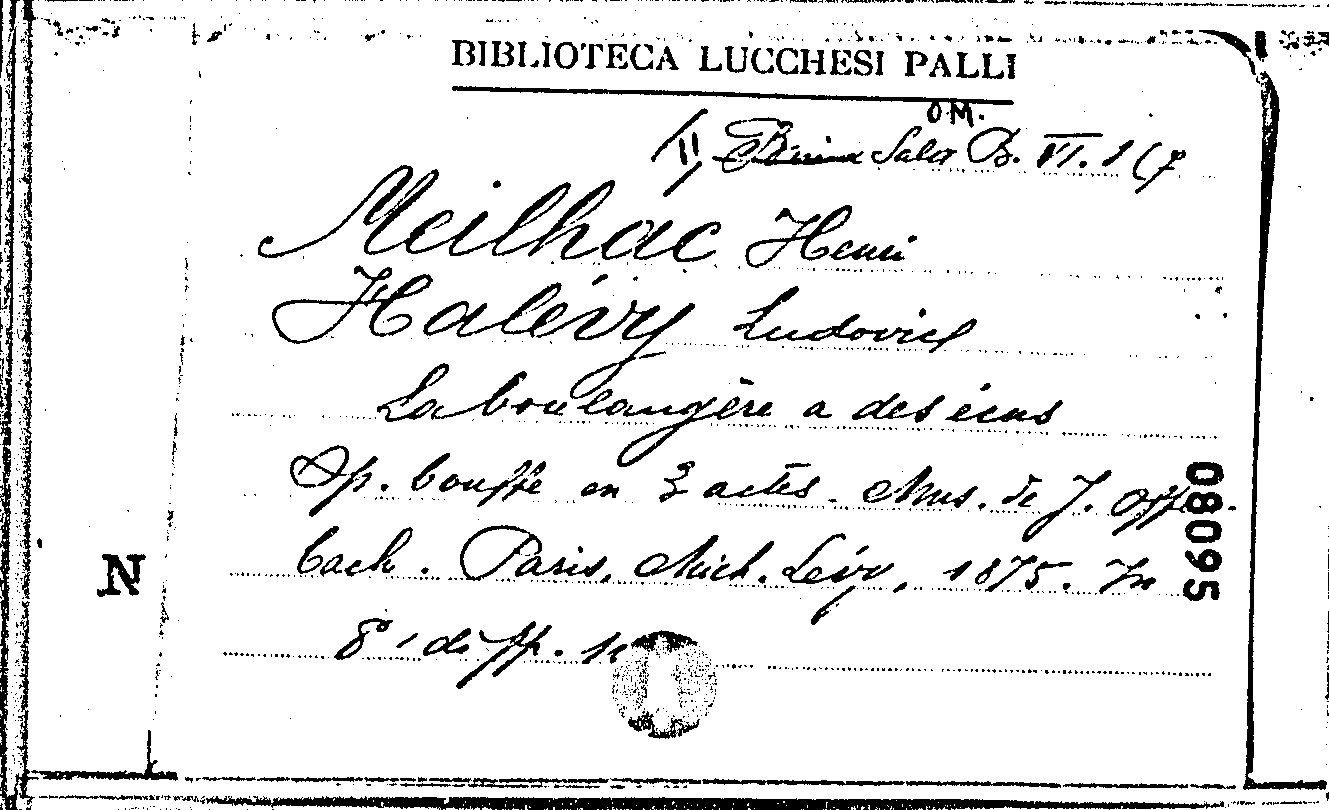 BIBLIOTECA LUCCHESI PALLI
O.M.
Sala B. VI.
Meilhac Henri
Halévy Ludovic
La boulangère a des écus
Op. bouffe en 3 actes. Mus. de J. Offen-
bach. Paris, Mich. Lévy, 1875. In
8°, di pp.
N
08095